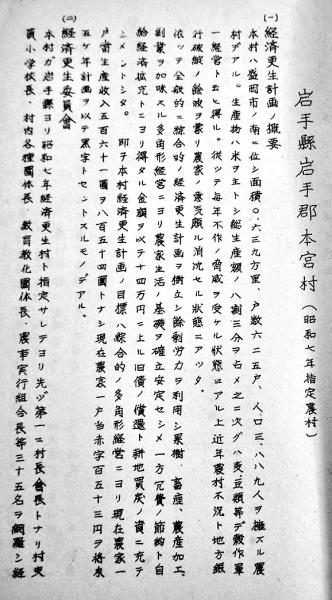 岩手縣岩手郡本宮村（昭和七年指定農村）
(一) 經済更生計画ノ概要
本村ハ盛岡市ノ南ニ位シ面積〇.六三九方里、戸数六二五戸、人口三、八八九人ヲ擁スル農
村デアル。生産物ハ米ヲ主トシ総生産額ノ八割三分ヲ占メ之ニ次グハ麦、豆類等デ穀作單
一經営ト云ヒ得ル。従ッテ毎年不作ノ脅威ヲ受ケル状態ニアル上近年農村不況ト地方銀
行破綻ノ餘波ヲ蒙リ農家ノ意気頗ル消沈セル状態ニアッタ。
依ッテ全般的ニ綜合的ノ經済更生計画ヲ樹立シ餘剰労力ヲ利用シ果樹、畜産、農産加工、
副業ヲ加味スル多角形經営ニヨリ農家生活ノ基礎ヲ確立安定セシメ一方冗費ノ節約ト自
給經済拡充トニヨリ得タル金額ヲ以テ十四万円ニ上ル旧債ノ償還ト耕地買戻ノ資ニ充テ
シメントシタ。即チ本村經済更生計画ノ目標ハ綜合的ノ多角形經営ニヨリ現在農家一
戸當生産收入五百六十一圓ヲ八百五十四圓トナシ現在農家一戸当赤字百五十三円ヲ将来
五ヶ年計画ヲ以テ黒字トセントスルモノデアル。
(二) 經済更生委員會
本村ガ岩手縣ヨリ昭和七年經済更生村ト指定サレテヨリ先ヅ第一ニ村長會長トナリ村吏
員小学校長、村内各種團体長、教育教化團体長、農事実行組合長等三十五名ヲ網羅シ經